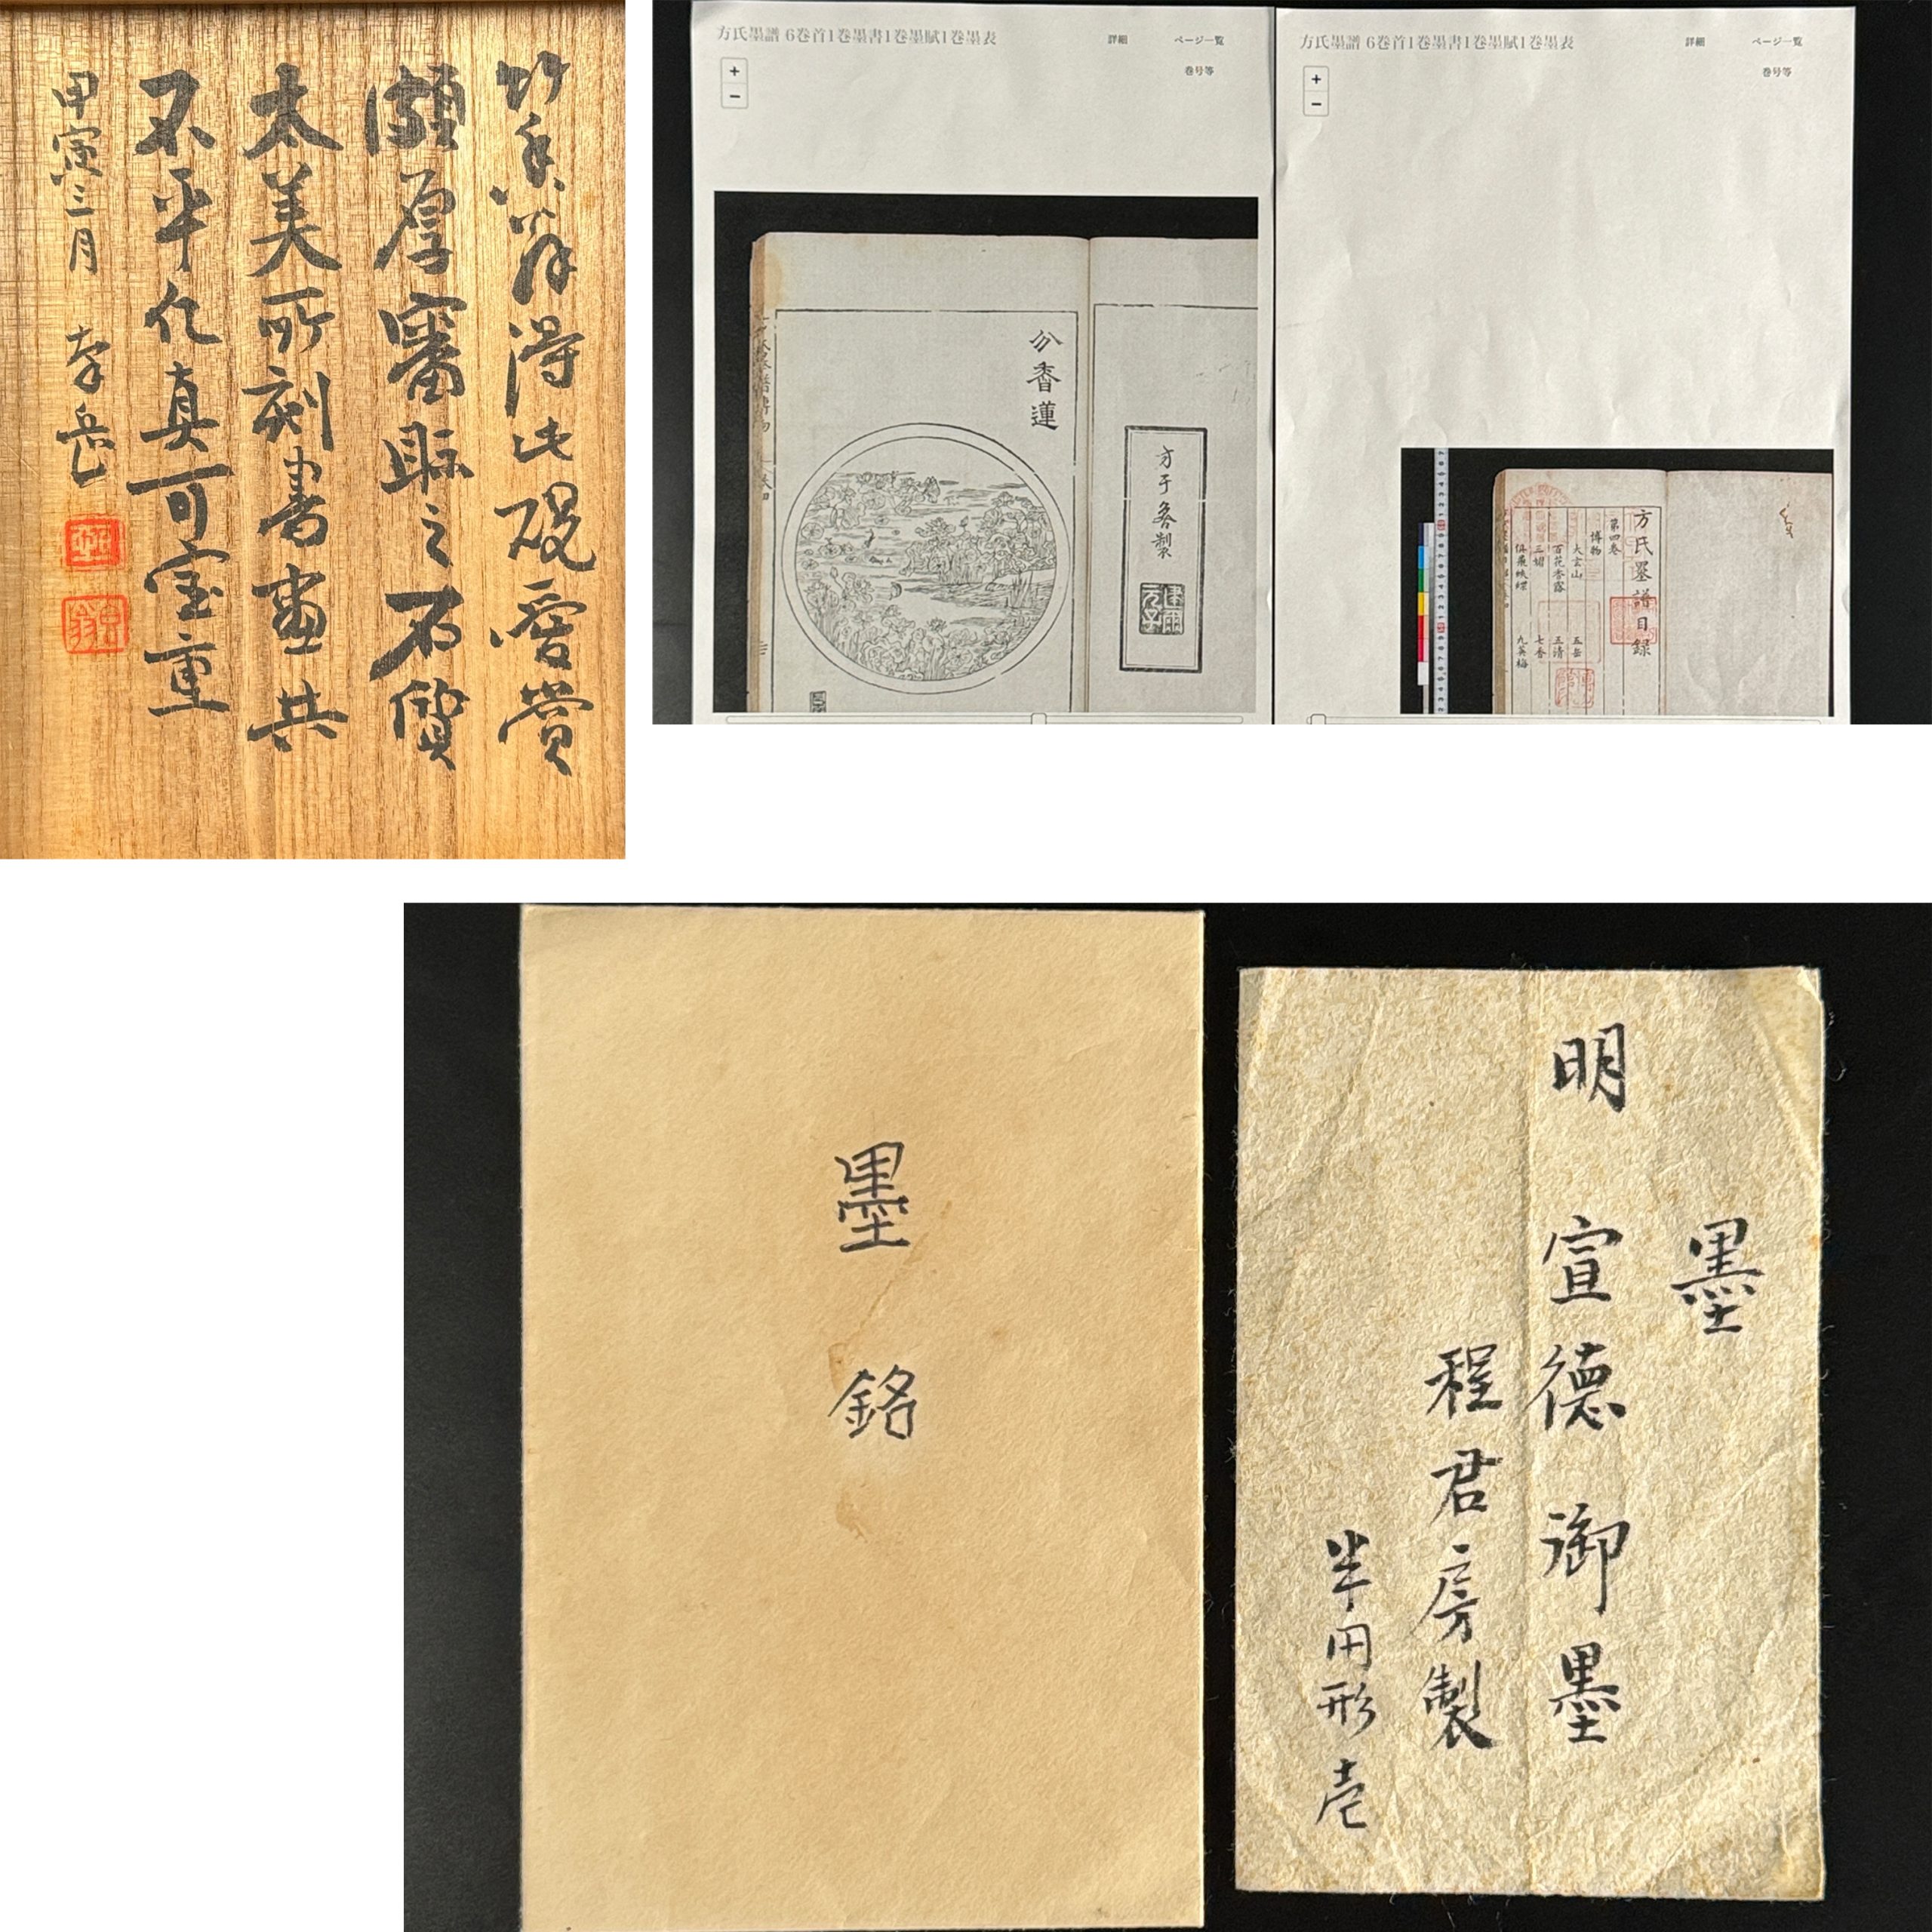 竹香翁得此硯愛賞
頗厚審眎之石質
太美所刻書畫共
不平凡真可宝重
甲寅三月
方氏墨譜 6巻首1巻墨書1巻墨賦1巻墨表
詳細
ページ一覧
巻号等
+
−
分香蓮
方于魯製
方氏墨譜 6巻首1巻墨書1巻墨賦1巻墨表
詳細
ページ一覧
巻号等
+
−
方氏墨譜目録
第四巻
博物
大玄山 五岳
百花香露 三清
七香
九英梅
墨銘
墨
明 宣德御墨
程君房製
半円形壱